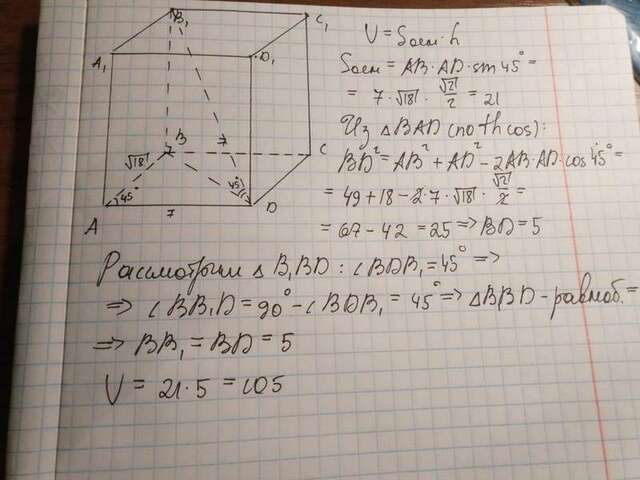 B₁
C₁
A₁
D₁
B
C
√18
7
45°
45°
A
7
D
V = Sосн · h
Sосн = AB · AD · sin 45° =
= 7 · √18 · √2/2 = 21
Из △BAD (по th cos):
BD² = AB² + AD² - 2AB · AD · cos 45° =
= 49 + 18 - 2 · 7 · √18 · √2/2 =
= 67 - 42 = 25 => BD = 5
Рассмотрим △ B₁BD : ∠BDB₁ = 45° =>
=> ∠BB₁D = 90° - ∠BDB₁ = 45° => △BBD - равноб. =
=> BB₁ = BD = 5
V = 21 · 5 = 105